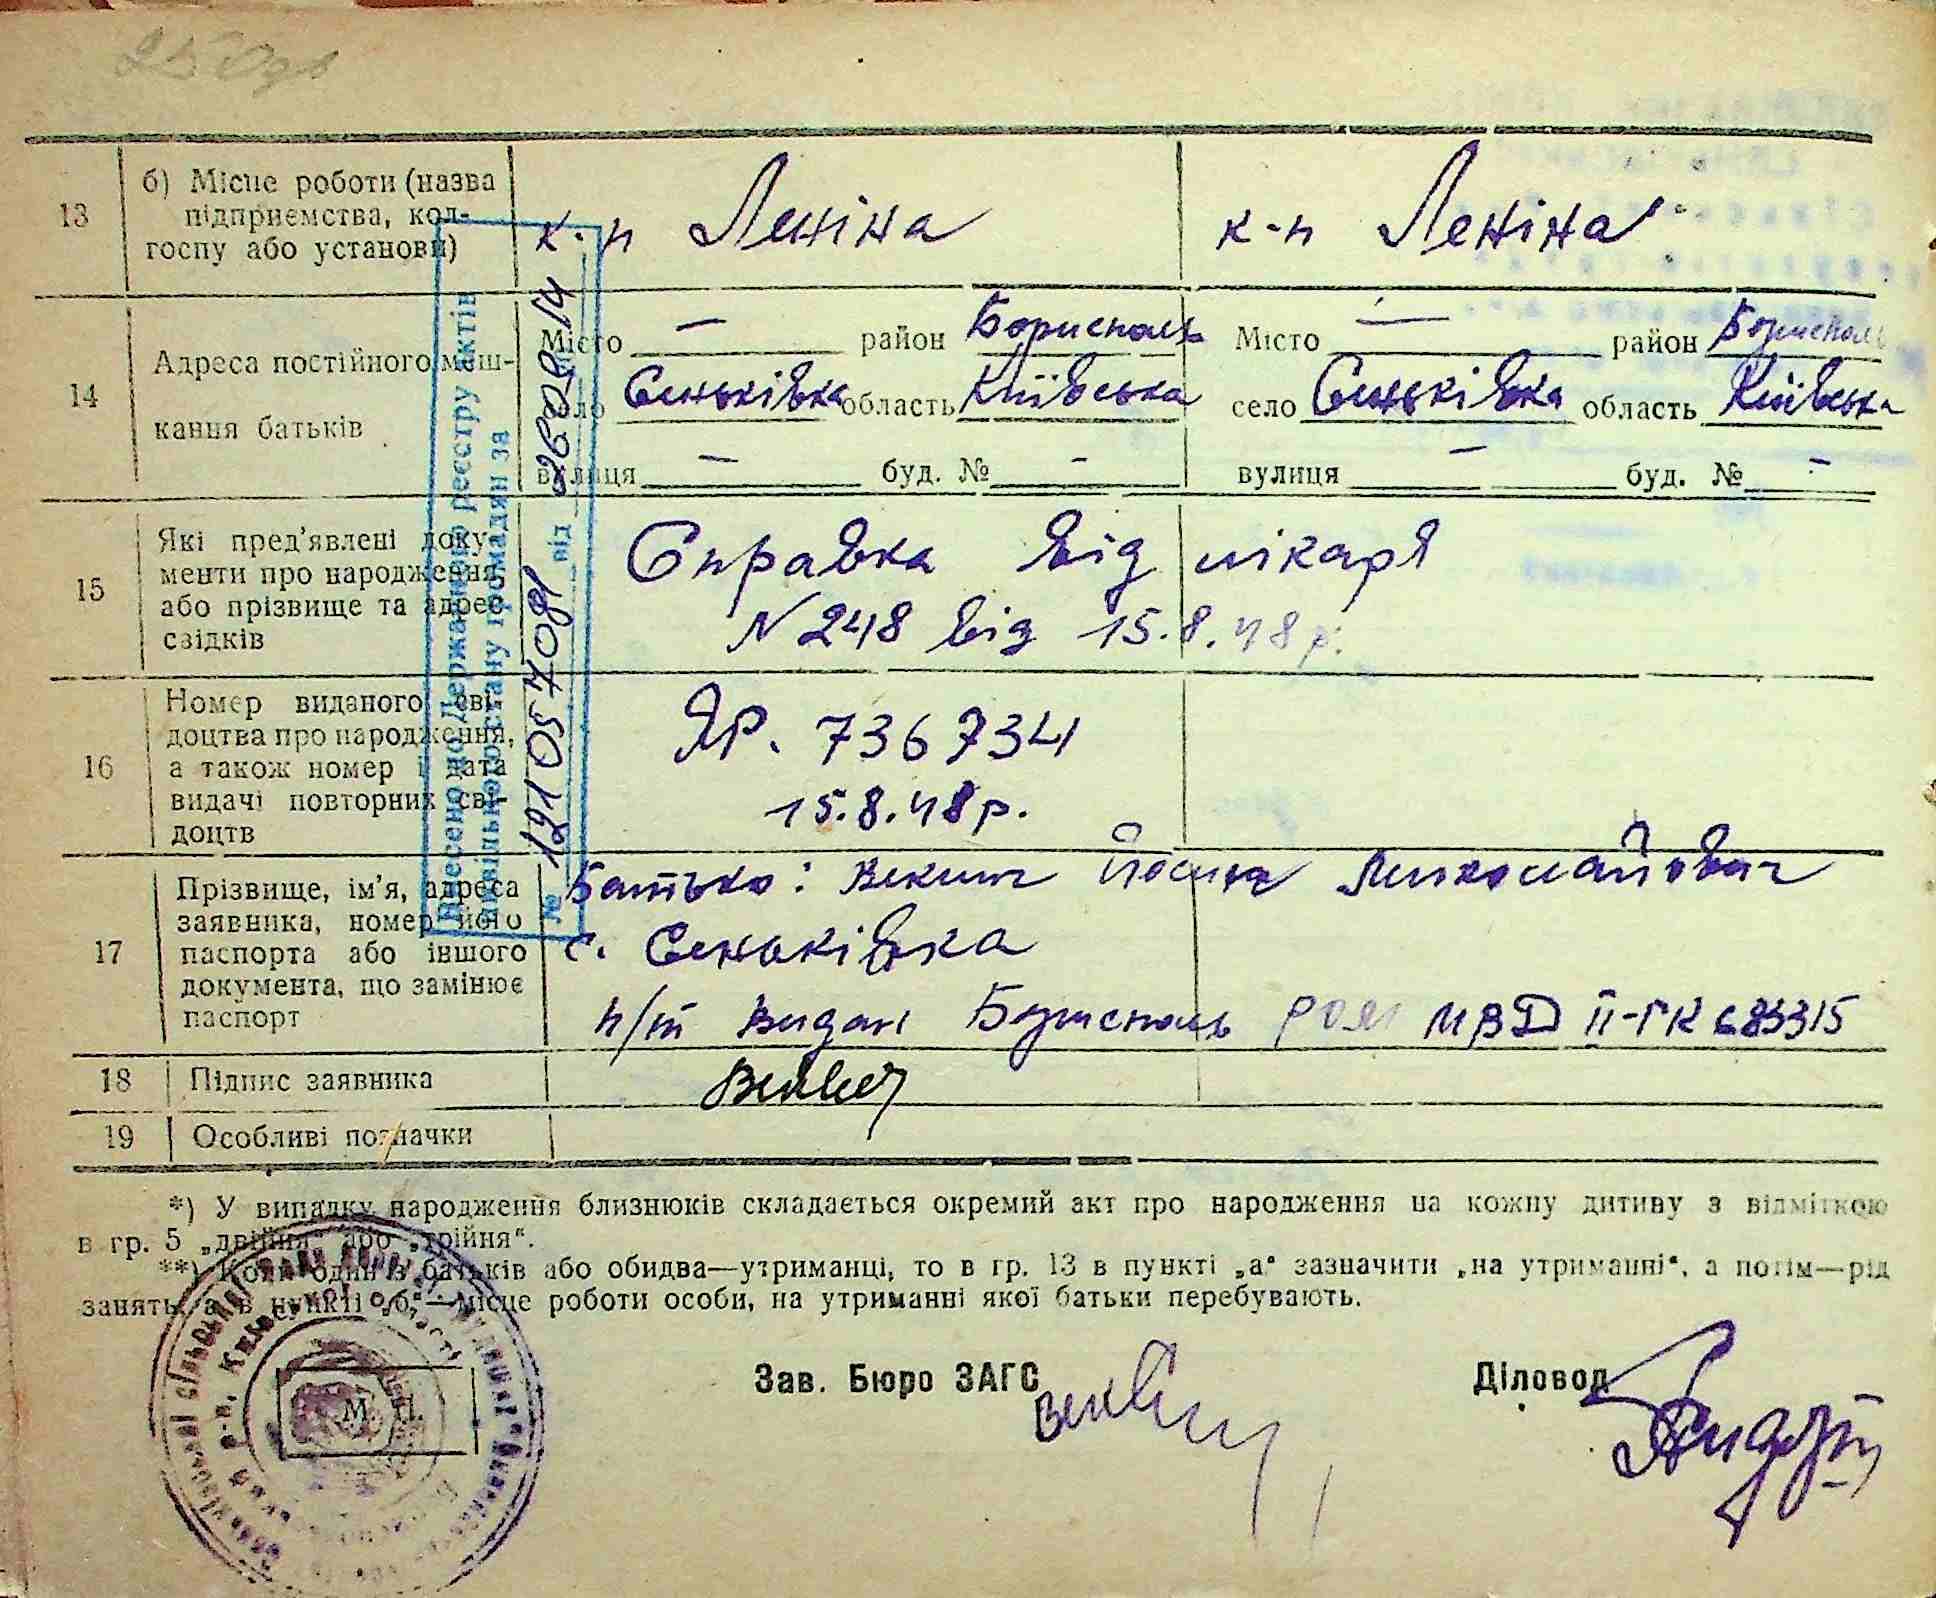 13
б) Місце роботи (назва
підприємства, кол-
госпу або установи)
к-п Леніна
к-п Леніна
14
Адреса постійного меш-
кання батьків
Місто — район Бориспаль
село Сеньківка область Київська
вулиця — буд. № -
Місто — район Бориспаль
село Сеньківка область Київська
вулиця — буд. № -
15
Які пред'явлені доку-
менти про народження,
або прізвище та адрес
свідків
Справка від лікаря
N 248 від 15.8.48 р.
16
Номер виданого сві-
доцтва про народження,
а також номер і дата
видачі повторних сві-
доцтв
ЯР. 7367341
15.8.48 р.
17
Прізвище, ім'я, адреса
заявника, номер його
паспорта або іншого
документа, що замінює
паспорт
Батько: Векшт Йосип Миколайович
с. Сеньківка
п/т видан Бориспаль РОМ МВД II-ГК 683315
18
Підпис заявника
19
Особливі позначки
Внесено до Державного реєстру актів
цивільного стану громадян за
№ 121057081 від 26.02.14
*) У випадку народження близнюків складається окремий акт про народження на кожну дитину з відміткою
в гр. 5 „двійня“ або „трійня“.
**) Коли один з батьків або обидва—утриманці, то в гр. 13 в пункті „а“ зазначити „на утриманні“, а потім—рід
занять, а в пункті „б“—місце роботи особи, на утриманні якої батьки перебувають.
М. П.
Зав. Бюро ЗАГС
Діловод